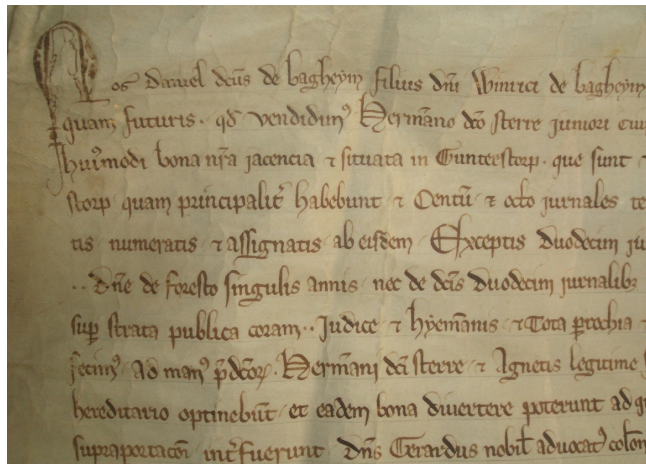 Nos Daniel dc̄us de bagheym filius dn̄i Winrici de bagheym
quam futuris · qd vendidim⁹ Herman̄o dc̄o sterre juniori
huiꝰmodi bona nr̄a jacencia ⁊ situata in Gunterstorp · que sunt
storp quam principalit̄ habebunt ⁊ Centū ⁊ octo jurnales
tis numeratis ⁊ assignatis ab eisdem Exceptis duodecim
·· dn̄e de foresto singulis annis nec de dc̄is duodecim jurnalibꝫ
sup̄ strata publica coram ·· Judice ⁊ hyemānis ⁊ Tota ꝑrochia
fecim⁹ Ad man⁹ p̄dc̄oꝝ · Herman̄i dc̄i sterre ⁊ Agnetis legitime
hereditario optinebūt et eadem bona divertere poterunt ad
supraportacōn int̄fuerunt Dn̄s Gerardus nobil̄ advocat⁹ colon̄